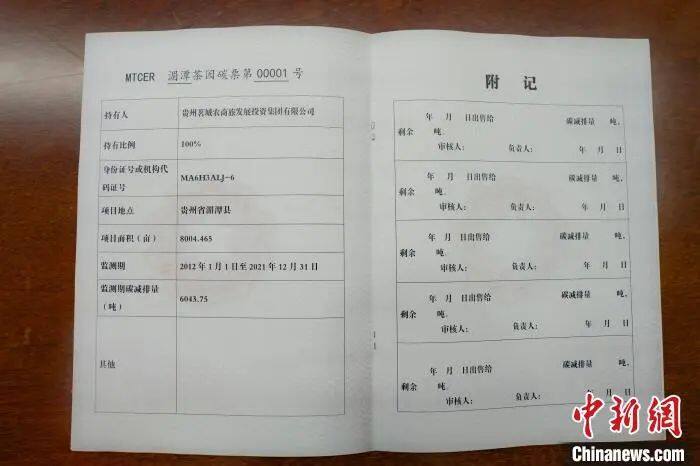 MTCER 湄潭茶园碳票第00001号
持有人 贵州茗城农商旅发展投资集团有限公司
持有比例 100%
身份证号或机构代
码证号 MA6H3ALJ-6
项目地点 贵州省湄潭县
项目面积（亩） 8004.465
监测期 2012年1月1日至2021年12月31日
监测期碳减排量
（吨） 6043.75
其他
附 记
年 月 日出售给 碳减排量 吨，
剩余 吨。
审核人： 负责人： 年 月 日
年 月 日出售给 碳减排量 吨，
剩余 吨。
审核人： 负责人： 年 月 日
年 月 日出售给 碳减排量 吨，
剩余 吨。
审核人： 负责人： 年 月 日
年 月 日出售给 碳减排量 吨，
剩余 吨。
审核人： 负责人： 年 月 日
年 月 日出售给 碳减排量 吨，
剩余 吨。
审核人： 负责人： 年 月 日
中新网
Chinanews.com